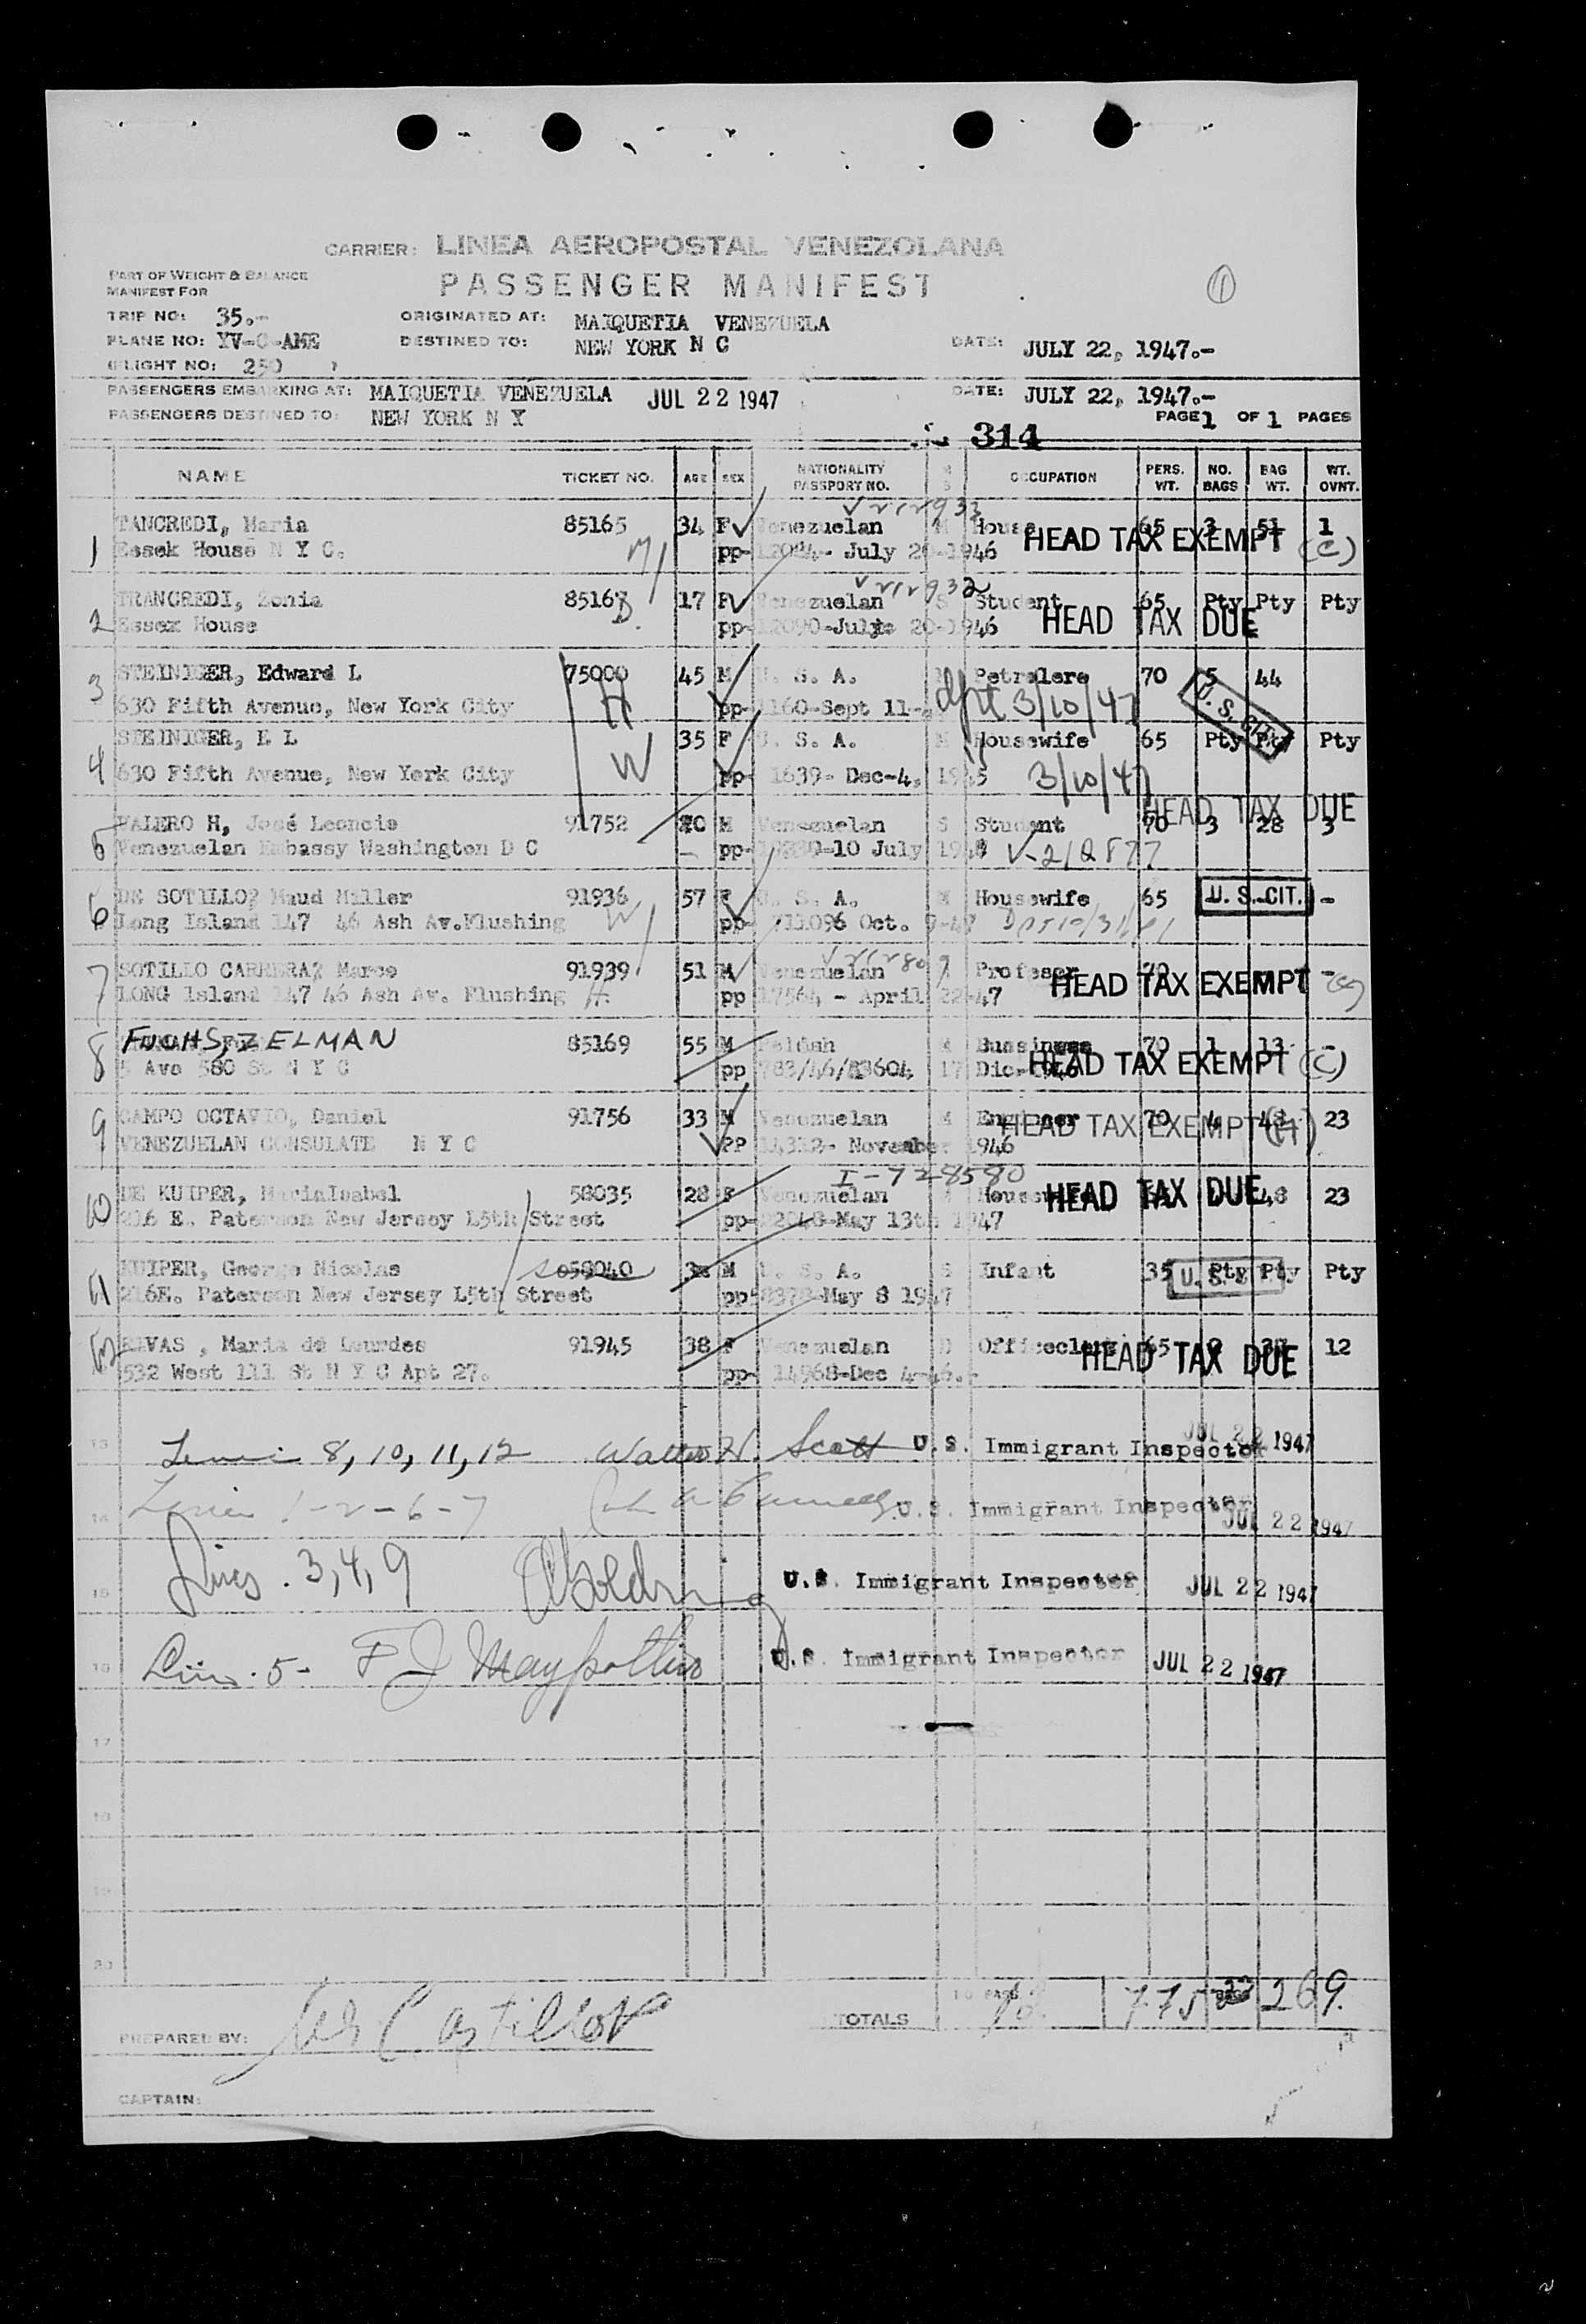 CARRIER: LINEA AEROPOSTAL VENEZOLANA
PART OF WEIGHT & BALANCE
MANIFEST FOR
PASSENGER MANIFEST
1
TRIP NO: 35.-
ORIGINATED AT: MAIQUETIA VENEZUELA
PLANE NO: YV-C-AME
DESTINED TO: NEW YORK N C
DATE: JULY 22, 1947.-
FLIGHT NO: 250
PASSENGERS EMBARKING AT: MAIQUETIA VENEZUELA JUL 22 1947 DATE: JULY 22, 1947.-
PASSENGERS DESTINED TO: NEW YORK N Y PAGE 1 OF 1 PAGES
314
NAME TICKET NO. AGE SEX NATIONALITY PASSPORT NO. M S OCCUPATION PERS. WT. NO. BAGS BAG WT. WT. OVNT.
1 TANCREDI, Maria 85165 34 F Venezuelan M House 65 3 51 1
Essek House N Y C. M pp- July 20-1946 HEAD TAX EXEMPT (C)
2 TRANCREDI, Zonia 85167 17 F Venezuelan S Student 65 Pty Pty Pty
Essex House D. pp-12090-July 20-1946 HEAD TAX DUE
3 STEINIGER, Edward L 75000 45 M U. S. A. M Petrolero 70 5 44
630 Fifth Avenue, New York City H pp-1160-Sept 11- 3/10/47 U. S. CIT.
4 STEINIGER, E L 35 F U. S. A. M Housewife 65 Pty Pty Pty
630 Fifth Avenue, New York City W pp- 1639- Dec-4, 1945 3/10/47
HEAD TAX DUE
5 VALERO H, José Leoncio 91752 20 M Venezuelan S Student 70 3 28 3
Venezuelan Embassy Washington D C pp- 10 July V-212877
6 DE SOTILLO? Maud Miller 91936 57 F U. S. A. M Housewife 65 U. S. CIT. -
Long Island 147 46 Ash Av.Flushing W pp- 711096 Oct.
7 SOTILLO CARRERA? Marco 91939 51 M Venezuelan Profesor 70 -
LONG Island 147 46 Ash Av. Flushing H pp 17564 - April 22-47 HEAD TAX EXEMPT
8 FUCHS, ZELMAN 85169 55 M M Bussiness 70 1 13 -
5 Ave 580 St N Y C pp 783/46/83604 17 Dic. HEAD TAX EXEMPT (C)
9 CAMPO OCTAVIO, Daniel 91756 33 M Venezuelan M Engineer 70 4 43 23
VENEZUELAN CONSULATE N Y C PP 14312- November 1946 HEAD TAX EXEMPT (H)
I-728580
10 DE KUIPER, MariaIsabel 58035 28 F Venezuelan Housewife 48 23
216 E. Paterson New Jersey L5th Street pp-22048-May 13th 1947 HEAD TAX DUE
11 KUIPER, George Nicolas 058040 M U. S. A. S Infant 35 Pty Pty Pty
216E. Paterson New Jersey L5th Street pp May 8 1947 U. S.
12 RIVAS , Maria de Lourdes 91945 38 F Venezuelan D Officeclerk 65 2 12
532 West 111 St N Y C Apt 27. pp- 14968-Dec 4-46.- HEAD TAX DUE
13 8, 10, 11, 12 Walter H. Scott U.S. Immigrant Inspector JUL 22 1947
14 1-2-6-7 U.S. Immigrant Inspector JUL 22 1947
15 Lines. 3, 4, 9 U.S. Immigrant Inspector JUL 22 1947
16 5- F J U.S. Immigrant Inspector JUL 22 1947
17
18
19
20
TOTALS 775 269.
PREPARED BY:
CAPTAIN: